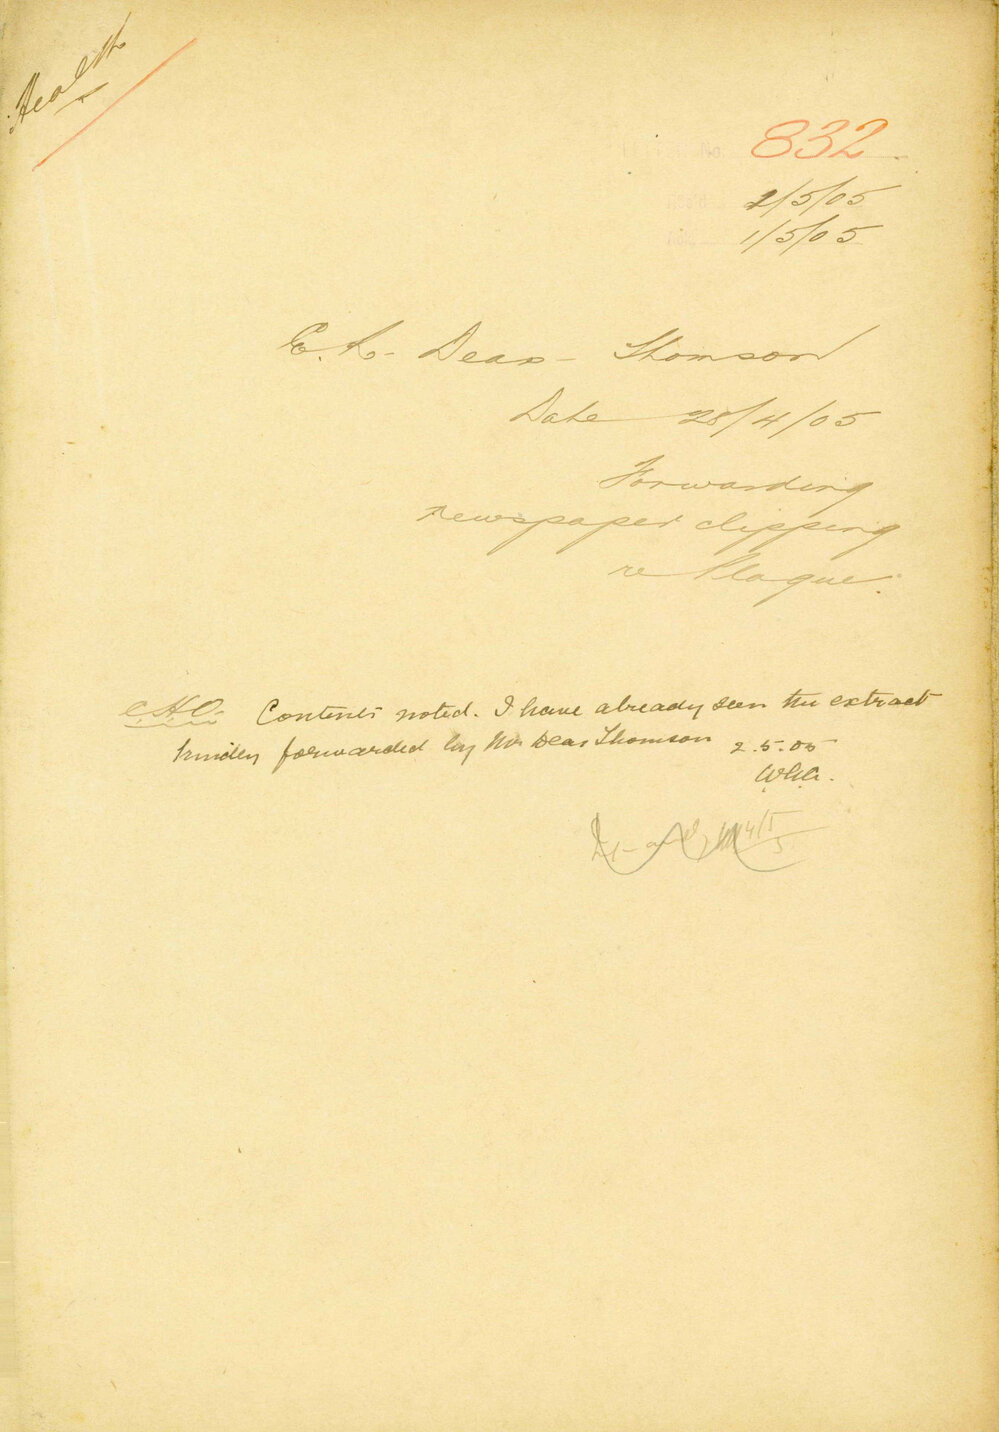 Health
832
2/5/05
1/5/05
E. A. Deas-Thomson
Date 28/4/05
Forwarding
newspaper clipping
re Plague.
C.H.O. Contents noted. I have already seen the extract
kindly forwarded by Mr Deas Thomson 2.5.05
4/5/5